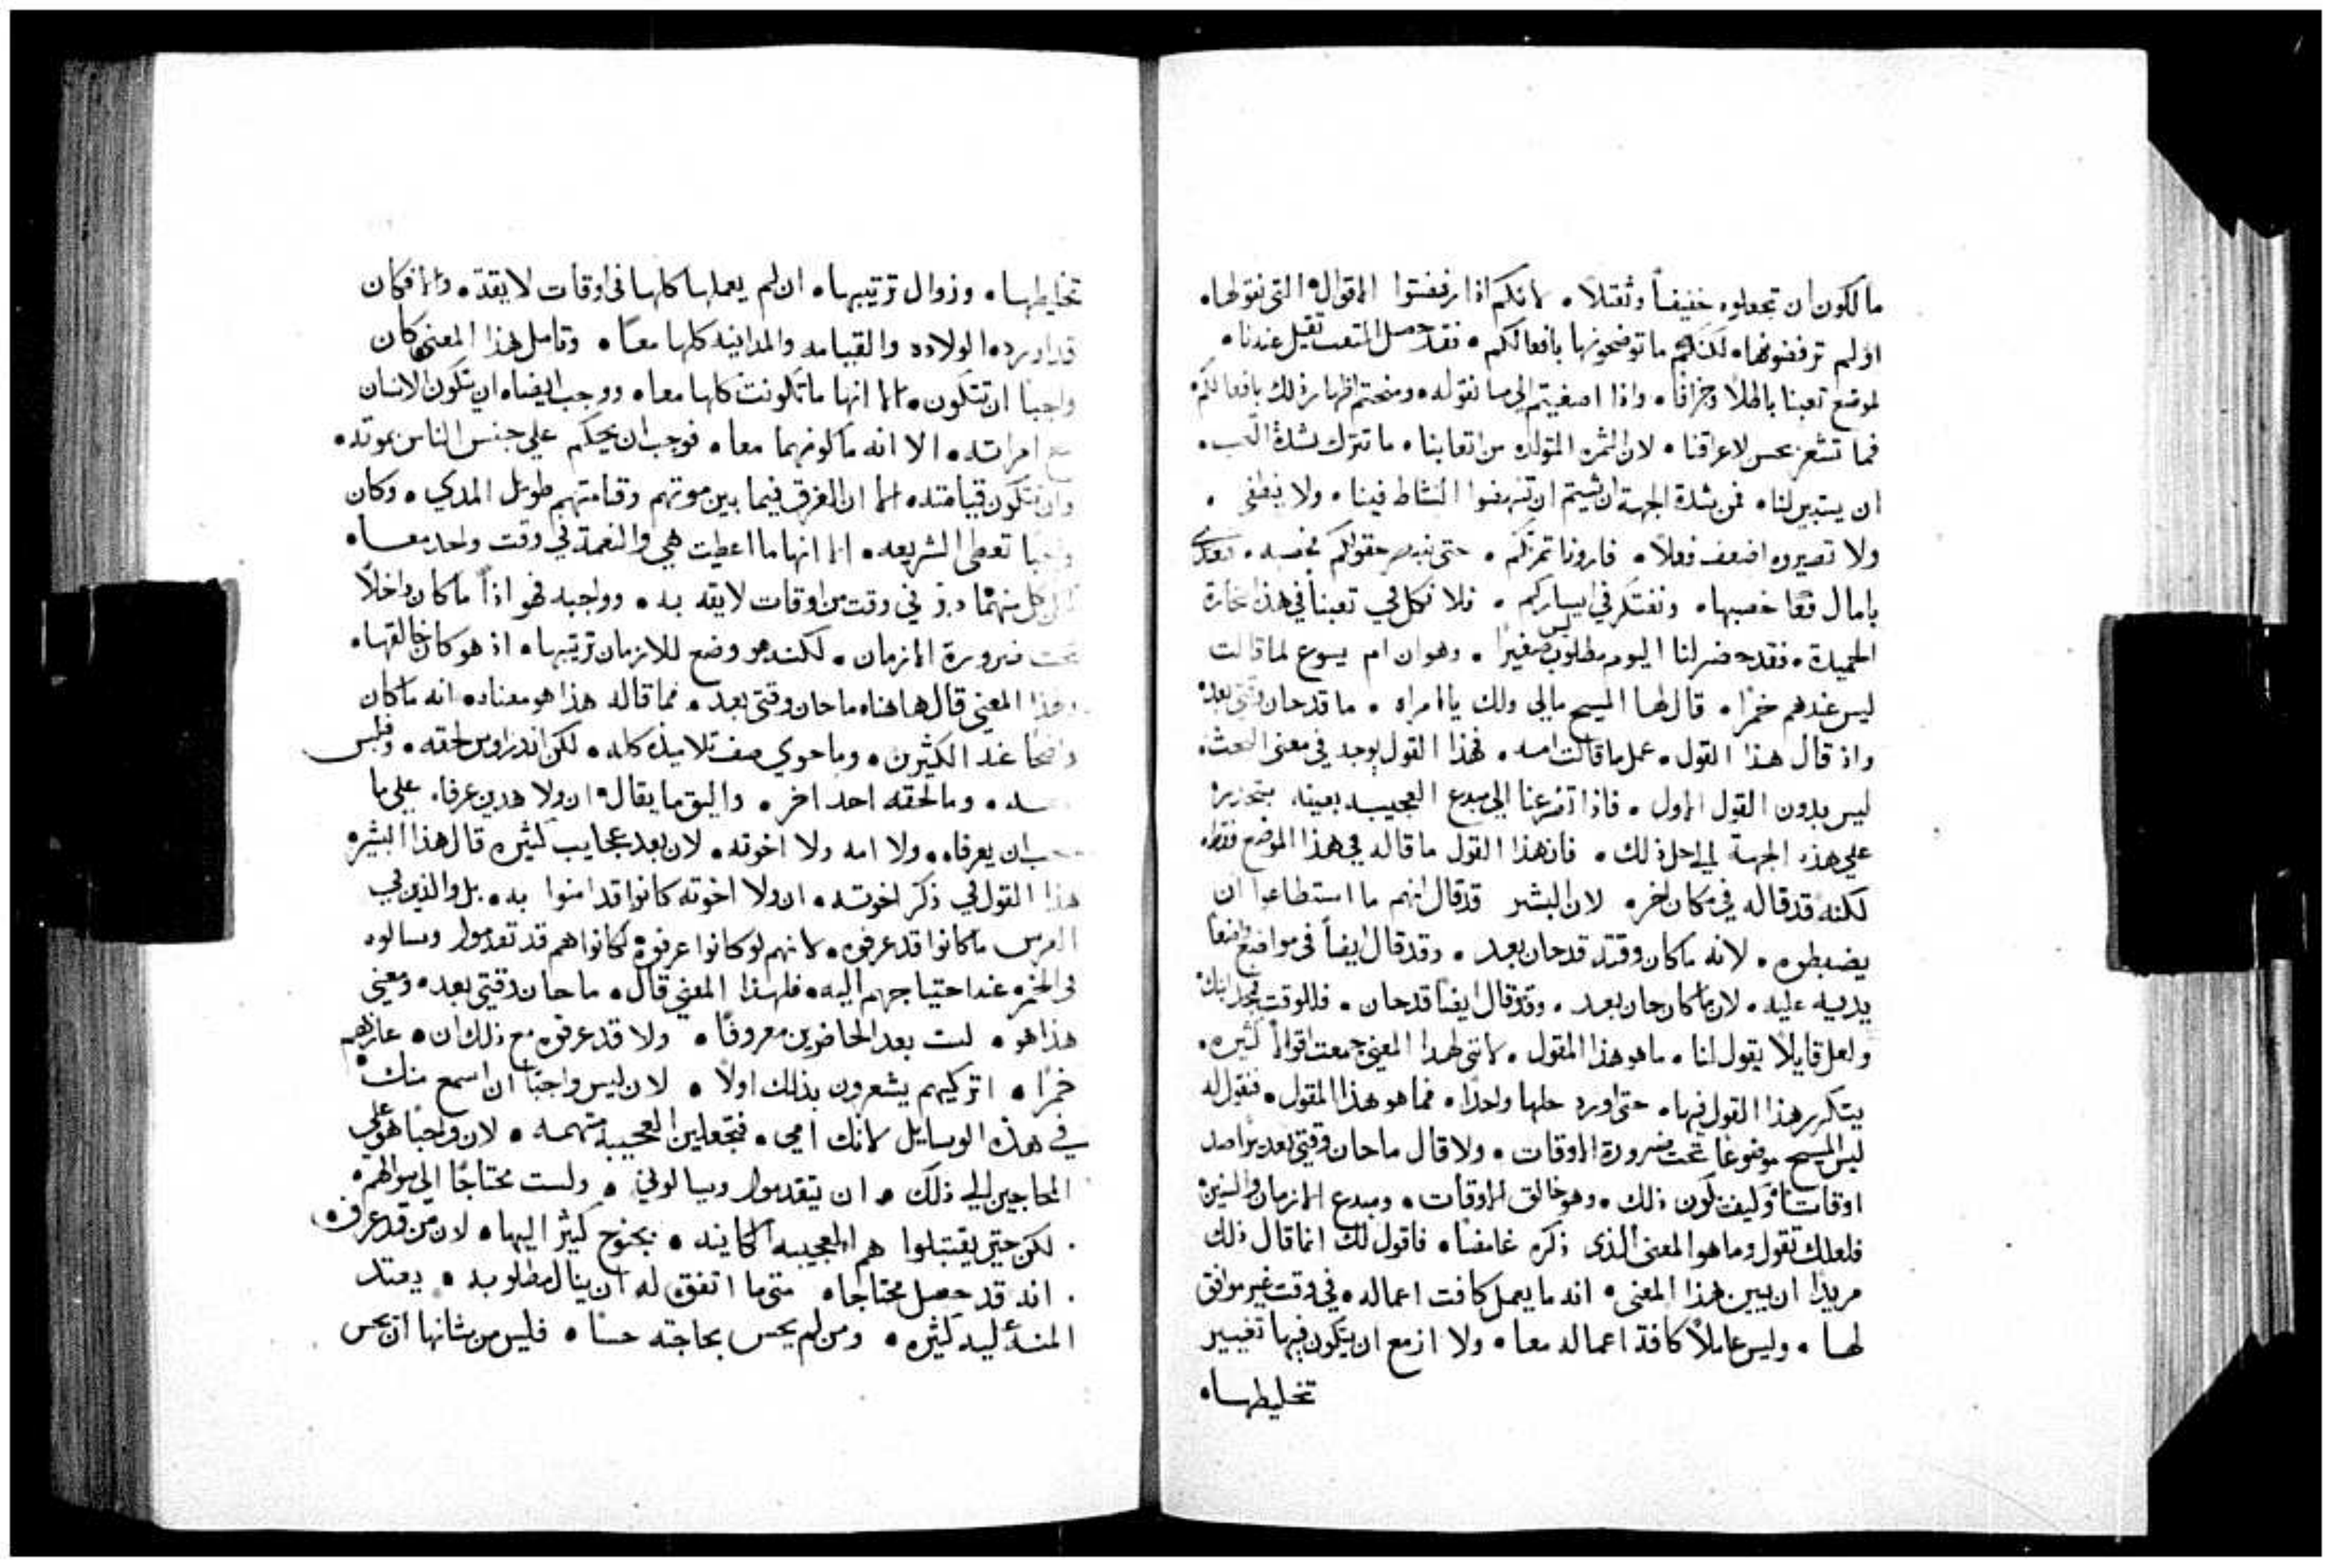 مالكون ان تجعلوه خفيفاً وثقلاً • لانكم اذا رفضتوا الاقوال التي نقولها •
اولم ترفضوها • لكنكم ما توضحونها بافعالكم • فقد حصل التعب ثقيل عندنا •
لموضع تعبنا باطلاً وجزافا • واذا اصغيتم الي ما نقوله • ومنحتم اظهار ذلك بافعالكم
فما نشعر بحس لاعراقنا • لان الثمره المتولده من اتعابنا • ما تترك شدة التعب •
ان يستبين لنا • فمن شدة الجهة ان شيتم ان تنهضوا النشاط فينا • ولا ينطفي •
ولا تصيروه اضعف فعلاً • فارونا ثمرتكم • حتي حقولكم مخصبه •
بامال خصبها • ونفتكر في ايساركم • فلا نكل في تعبنا في هذه التجارة
الحميدة • فقد حضر لنا اليوم مطلوب ليس صغيراً • وهو ان ام يسوع لما قالت
ليس عندهم خمراً • قال لها المسيح مالي ولك يا امراه • ما قد حان وقتي بعد •
واذ قال هذا القول • عمل ما قالت امه • فهذا القول يوجد في معني البحث •
ليس بدون القول الاول • فاذا تضرعنا الي مبدع العجيبه بعينه
علي هذه الجهة الي حل ذلك • فان هذا القول ما قاله في هذا الموضع فقط •
لكنه قد قاله في مكان اخر • لان البشير قد قال انهم ما استطاعوا ان
يضبطوه • لانه ما كان وقته قد حان بعد • وقد قال ايضاً في مواضع
يديه عليه • لان ما كان حان بعد • وقد قال ايضا قد حان • فللوقت مجد ابنك •
ولعل قايلاً يقول لنا • ما هو هذا المقول • لانني لهذا المعني جمعت اقوالاً كثيره •
يتكرر هذا القول فيها • حتي اورد حلها واحداً • فما هو هذا المقول • فنقول له
ليس المسيح موضوعا تحت ضرورة الاوقات • ولا قال ما حان وقتي بعد
اوقاتنا • وكيف يكون ذلك • وهو خالق الاوقات • ومبدع الازمان والسنين •
فلعلك تقول وما هو المعني الذي ذكره غامضا • فاقول لك انما قال ذلك
مريدا ان يبين هذا المعني • انه ما يعمل كافت اعماله • في وقت غير موافق
لها • وليس عاملاً كافة اعماله معا • ولا ازمع ان يتكون فيها تغيير
تخليطها •
تخليطها • وزوال ترتيبها • ان لم يعملها كلها في اوقات لايقة • والا فكان
قد اورد الولاده والقيامه والمداينه كلها معاً • وتامل هذا المعني كان
واجباً ان تتكون • الا انها ما تكونت كلها معا • ووجب ايضا • ان يتكون الانسان
مع امراته • الا انه ما كونهما معا • فوجب ان يحكم علي جنس الناس بموته •
وان تتكون قيامته • الا ان الفرق فيما بين موتهم وقيامتهم طويل المدي • وكان
تعطي الشريعه • الا انها ما اعطيت هي والنعمة في وقت واحد معا •
كل منهما في وقت من اوقات لايقه به • وواجبه فهو اذاً ما كان داخلاً
تحت ضرورة الازمان • لكنه هو وضع للازمان ترتيبها • اذ هو كان خالقها •
وهذا المعني قال هاهنا • ما حان وقتي بعد • فما قاله هذا هو معناه • انه ما كان
واضحا عند الكثيرين • وما حوي صف تلاميذه كله • لكن اندراوس لحقه • وفيلبس
معه • وما لحقه احد اخر • واليق ما يقال ان ولا هذين عرفاه علي ما
يجب ان يعرفاه • ولا امه ولا اخوته • لان بعد عجايب كثيره قال هذا البشير •
هذا القول في ذكر اخوته • ان ولا اخوته كانوا قد امنوا به • بل والذين في
العرس ما كانوا قد عرفوه • لانهم لو كانوا عرفوه لكانوا هم قد تقدموا وسالوه
في الخمره عند احتياجهم اليه • فلهذا المعني قال • ما حان وقتي بعد • ومعني
هذا هو • لست بعد الحاضرين معروفاً • ولا قد عرفوه مع ذلك ان • عازهم
خمراً • اتركيهم يشعرون بذلك اولاً • لان ليس واجباً ان اسمع منك •
في هذه الوسايل لانك امي • فتجعلين العجيبه متهمه • لان واجباً هو علي
المحتاجين الي ذلك • ان يتقدموا ويسالوني • ولست محتاجاً الي سوالهم •
لكن حتي يقتبلوا هم العجيبه الكاينه • بجنوح كثير اليها • لان من قد عرف •
انه قد حصل محتاجا • متي ما اتفق له ان ينال مطلوبه • يعتد
المنة ليه كثيره • ومن لم يحس بحاجته حساً • فليس من شانها ان يحس